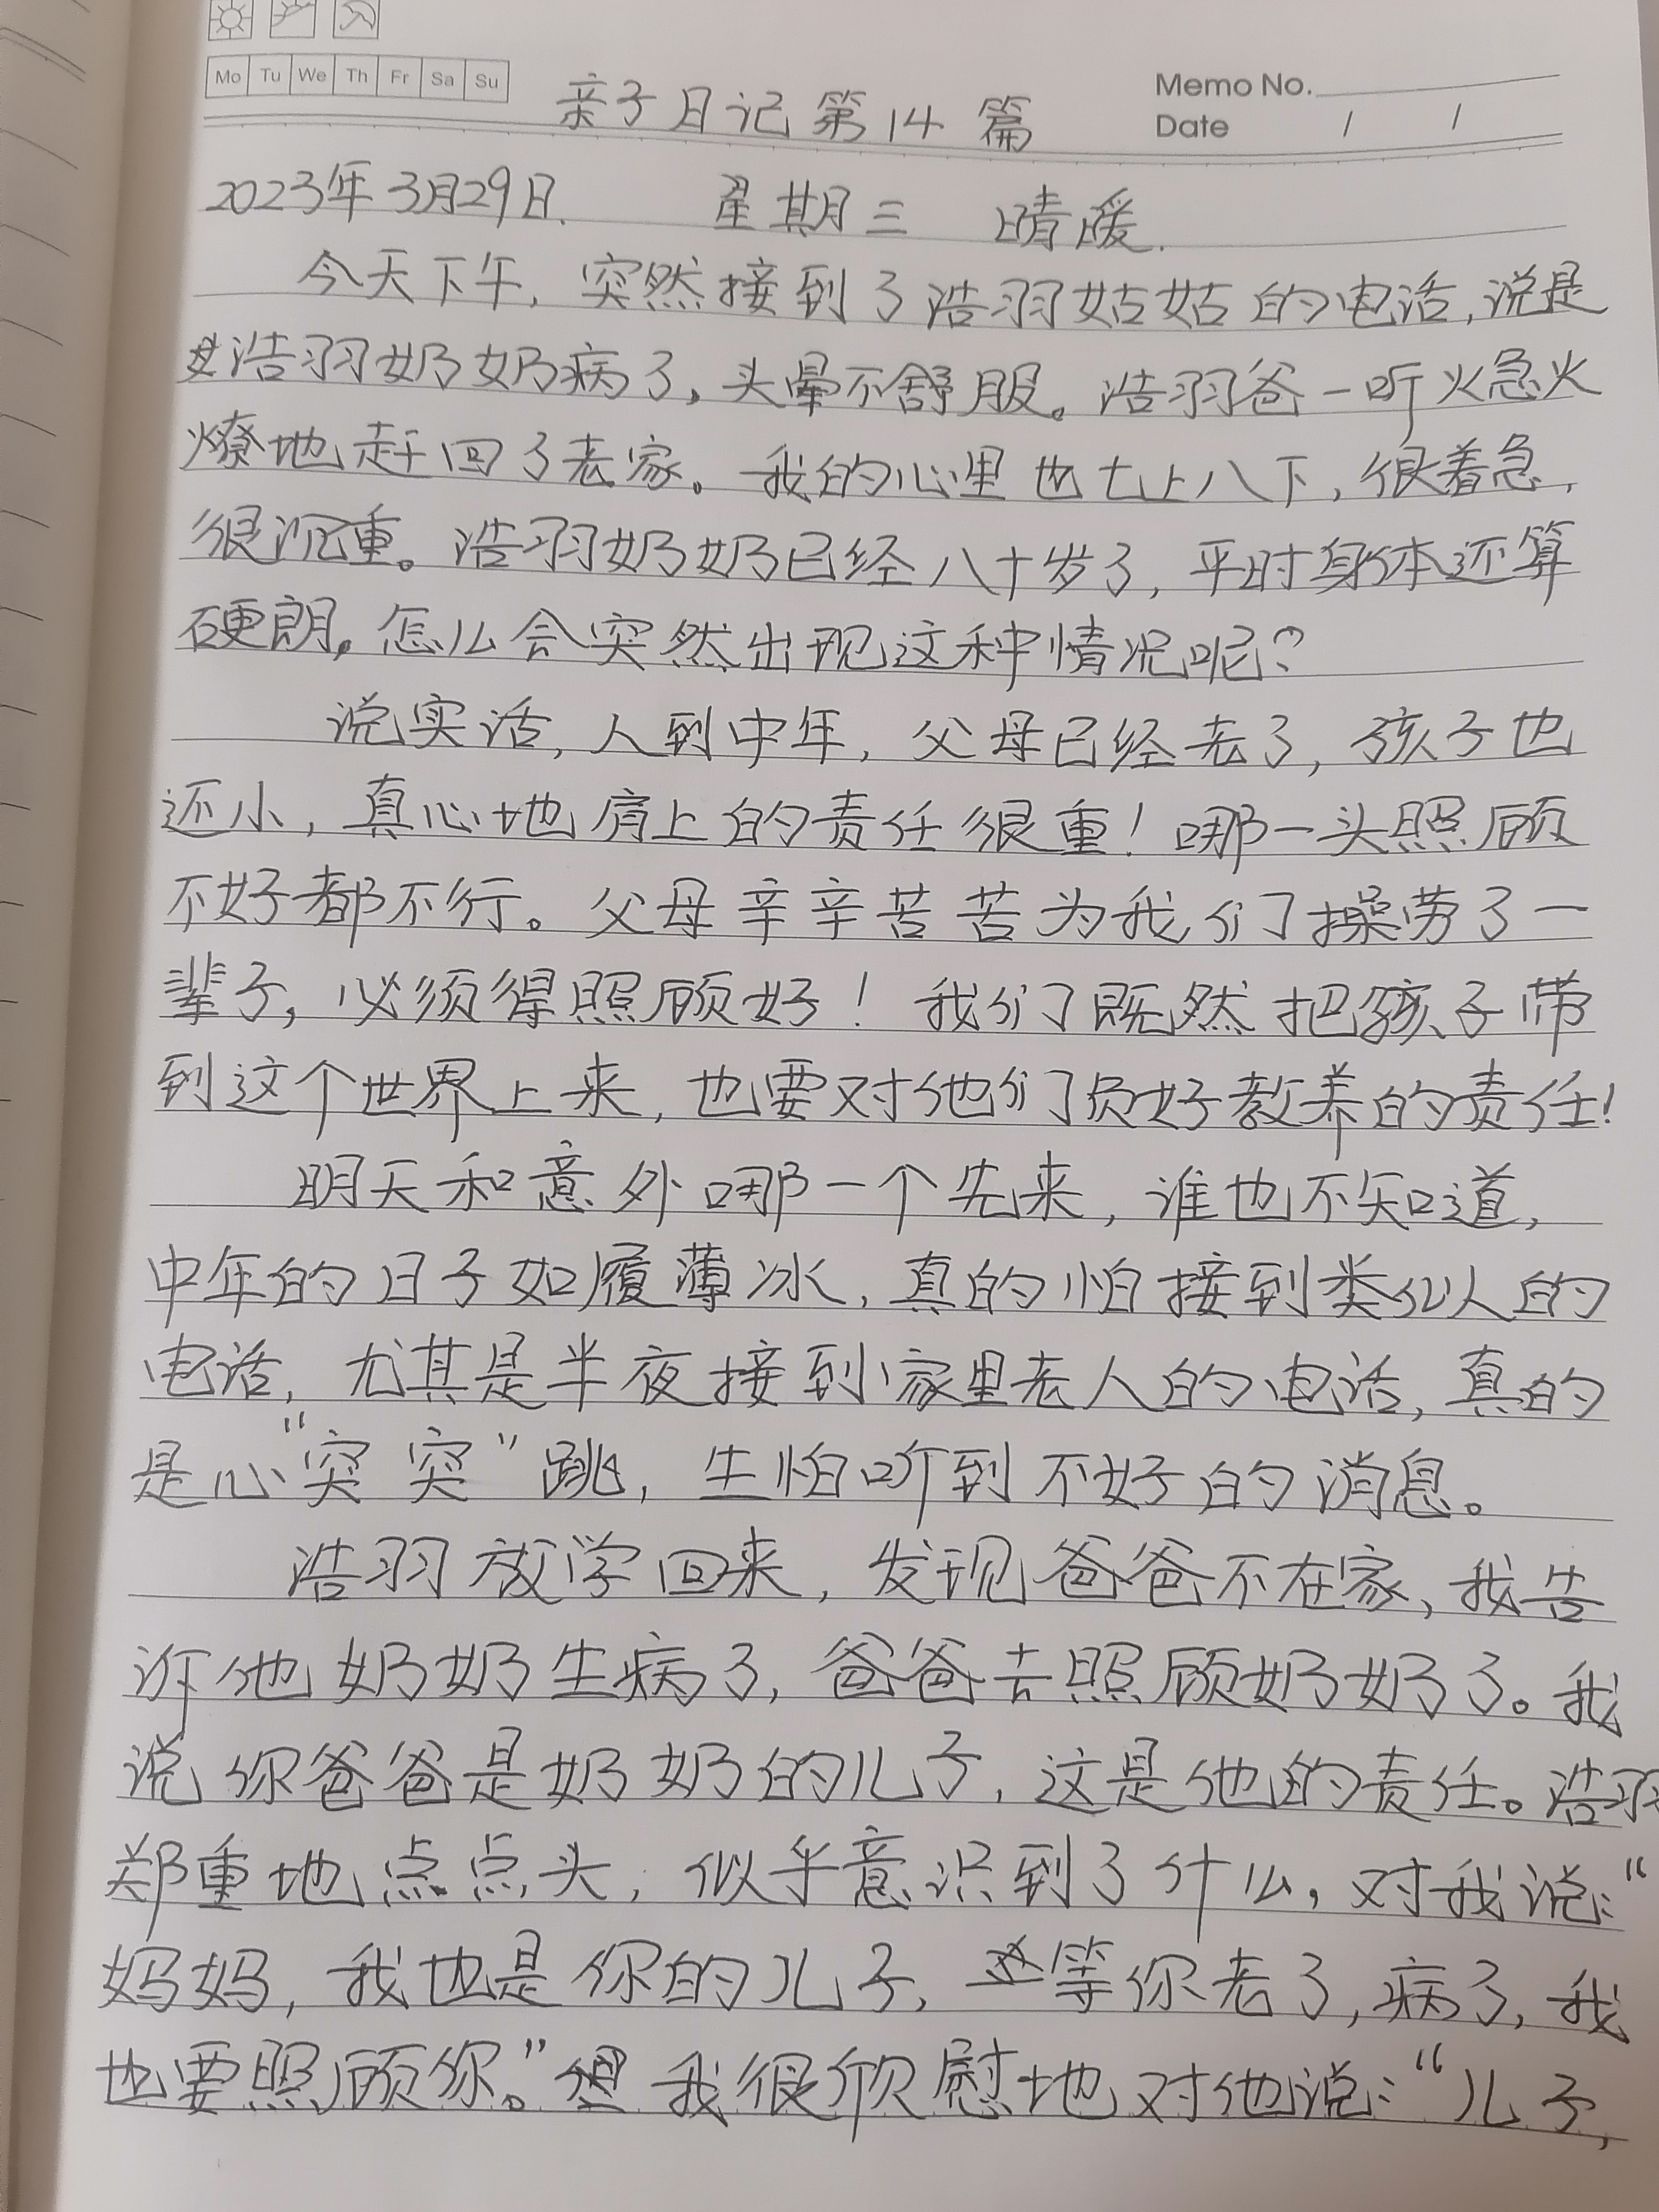 Mo Tu We Th Fr Sa Su
亲子日记第14篇
Memo No.
Date / /
2023年3月29日. 星期三 晴暖.
今天下午,突然接到了浩羽姑姑的电话,说是
浩羽奶奶病了,头晕不舒服。浩羽爸一听火急火
燎地赶回了老家。我的心里也七上八下,很着急,
很沉重。浩羽奶奶已经八十岁了,平时身体还算
硬朗。怎么会突然出现这种情况呢?
说实话,人到中年,父母已经老了,孩子也
还小,真心地肩上的责任很重!哪一头照顾
不好都不行。父母辛辛苦苦为我们操劳了一
辈子,必须得照顾好!我们既然把孩子带
到这个世界上来,也要对他们负好教养的责任!
明天和意外哪一个先来,谁也不知道,
中年的日子如履薄冰,真的怕接到类似的
电话,尤其是半夜接到家里老人的电话,真的
是心“突突”跳,生怕听到不好的消息。
浩羽放学回来,发现爸爸不在家,我告
诉他奶奶生病了,爸爸去照顾奶奶了。我
说你爸爸是奶奶的儿子,这是他的责任。浩羽
郑重地点点头,似乎意识到了什么,对我说:“
妈妈,我也是你的儿子,等你老了,病了,我
也要照顾你。”我很欣慰地对他说:“儿子,